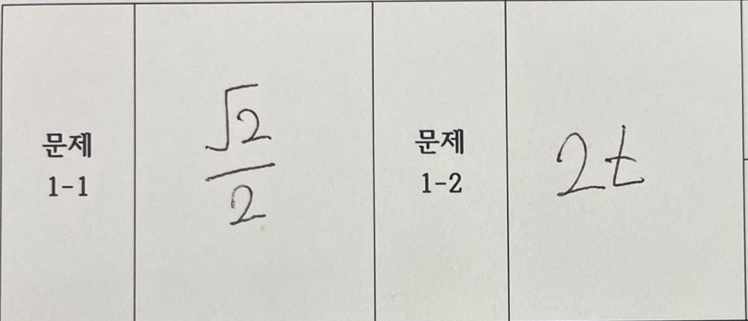 문제
1-1
√2
2
문제
1-2
2t